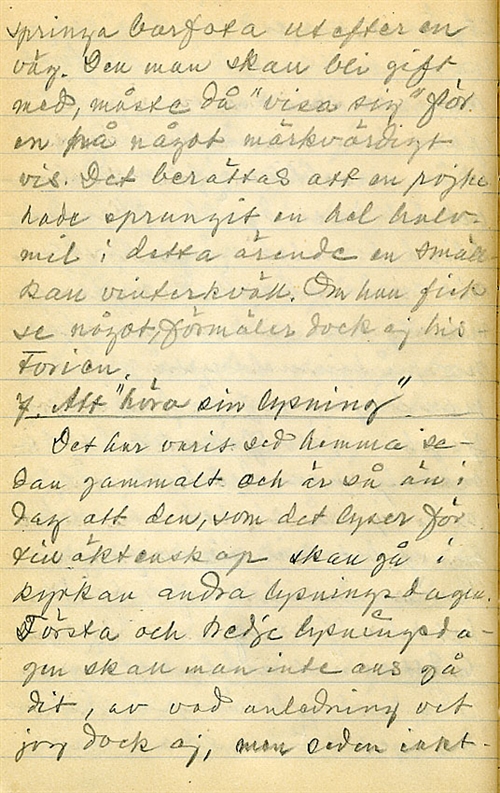 springa barfota utefter en
väg. Den man skall bli gift
med, måste då "visa sig" för
en på något märkvärdigt
vis. Det berättas att en pojke
hade sprungit en hel halv-
mil i detta ärende en smäll-
kall vinterkväll. Om han fick
se något, förmäler dock ej his-
torien.
7. Att "höra sin lysning"
Det har varit sed hemma se-
dan gammalt och är så än i
dag att den, som det lyser för
till äktenskap skall gå i
kyrkan andra lysningsdagen.
Första och tredje lysningsda-
gen skall man inte alls gå
dit, av vad anledning vet
jag dock ej, men seden iakt-